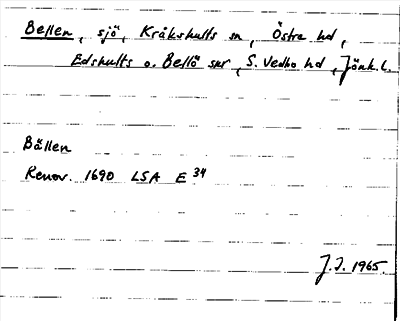 Bellen, sjö, Kråkshults sn, Östra hd,
Edshults o. Bellö snr, S. Vedbo hd, Jönk.l.
Bällen
Renov. 1690 LSA E 34
J.I. 1965.